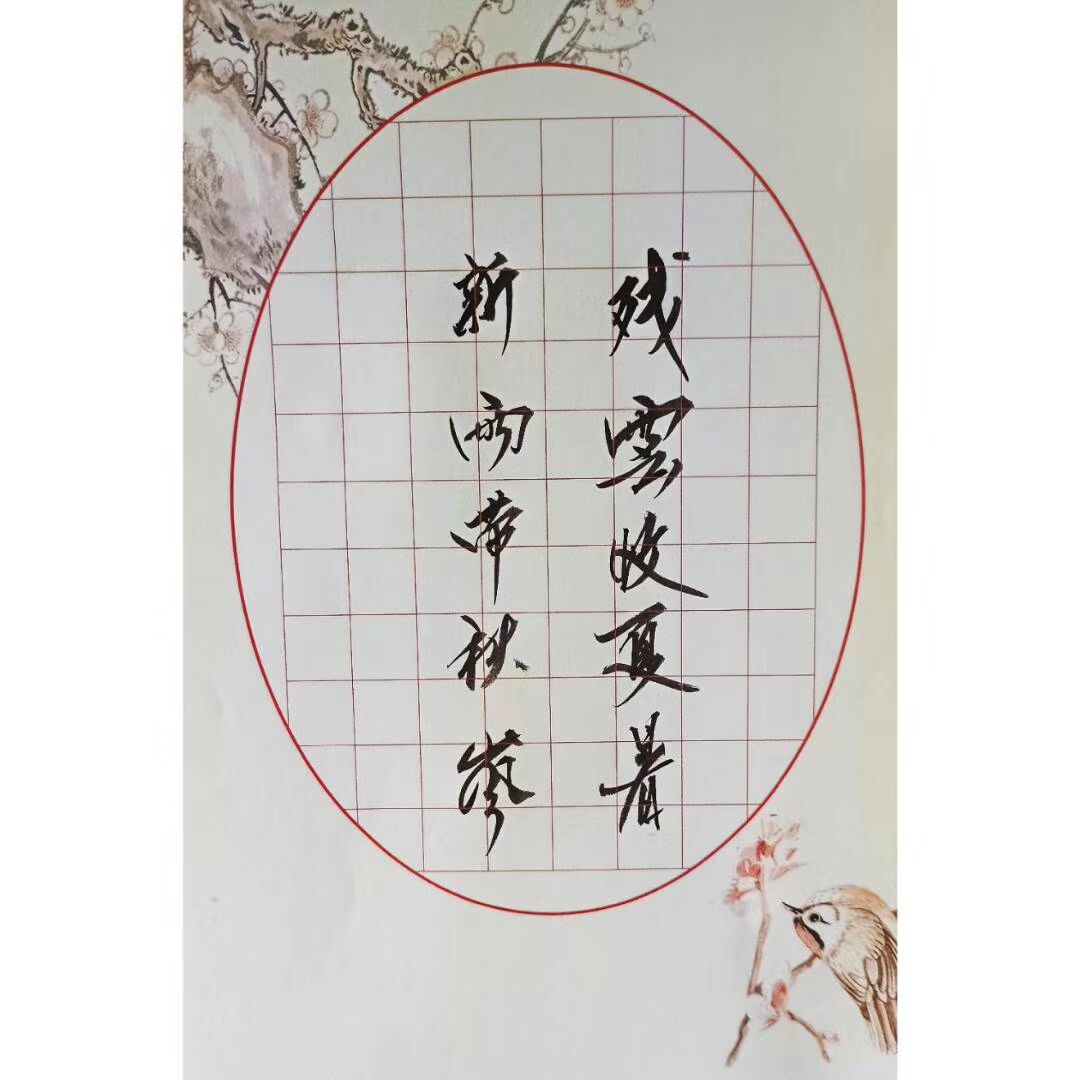 残雲收夏暑
新雨带秋嵐